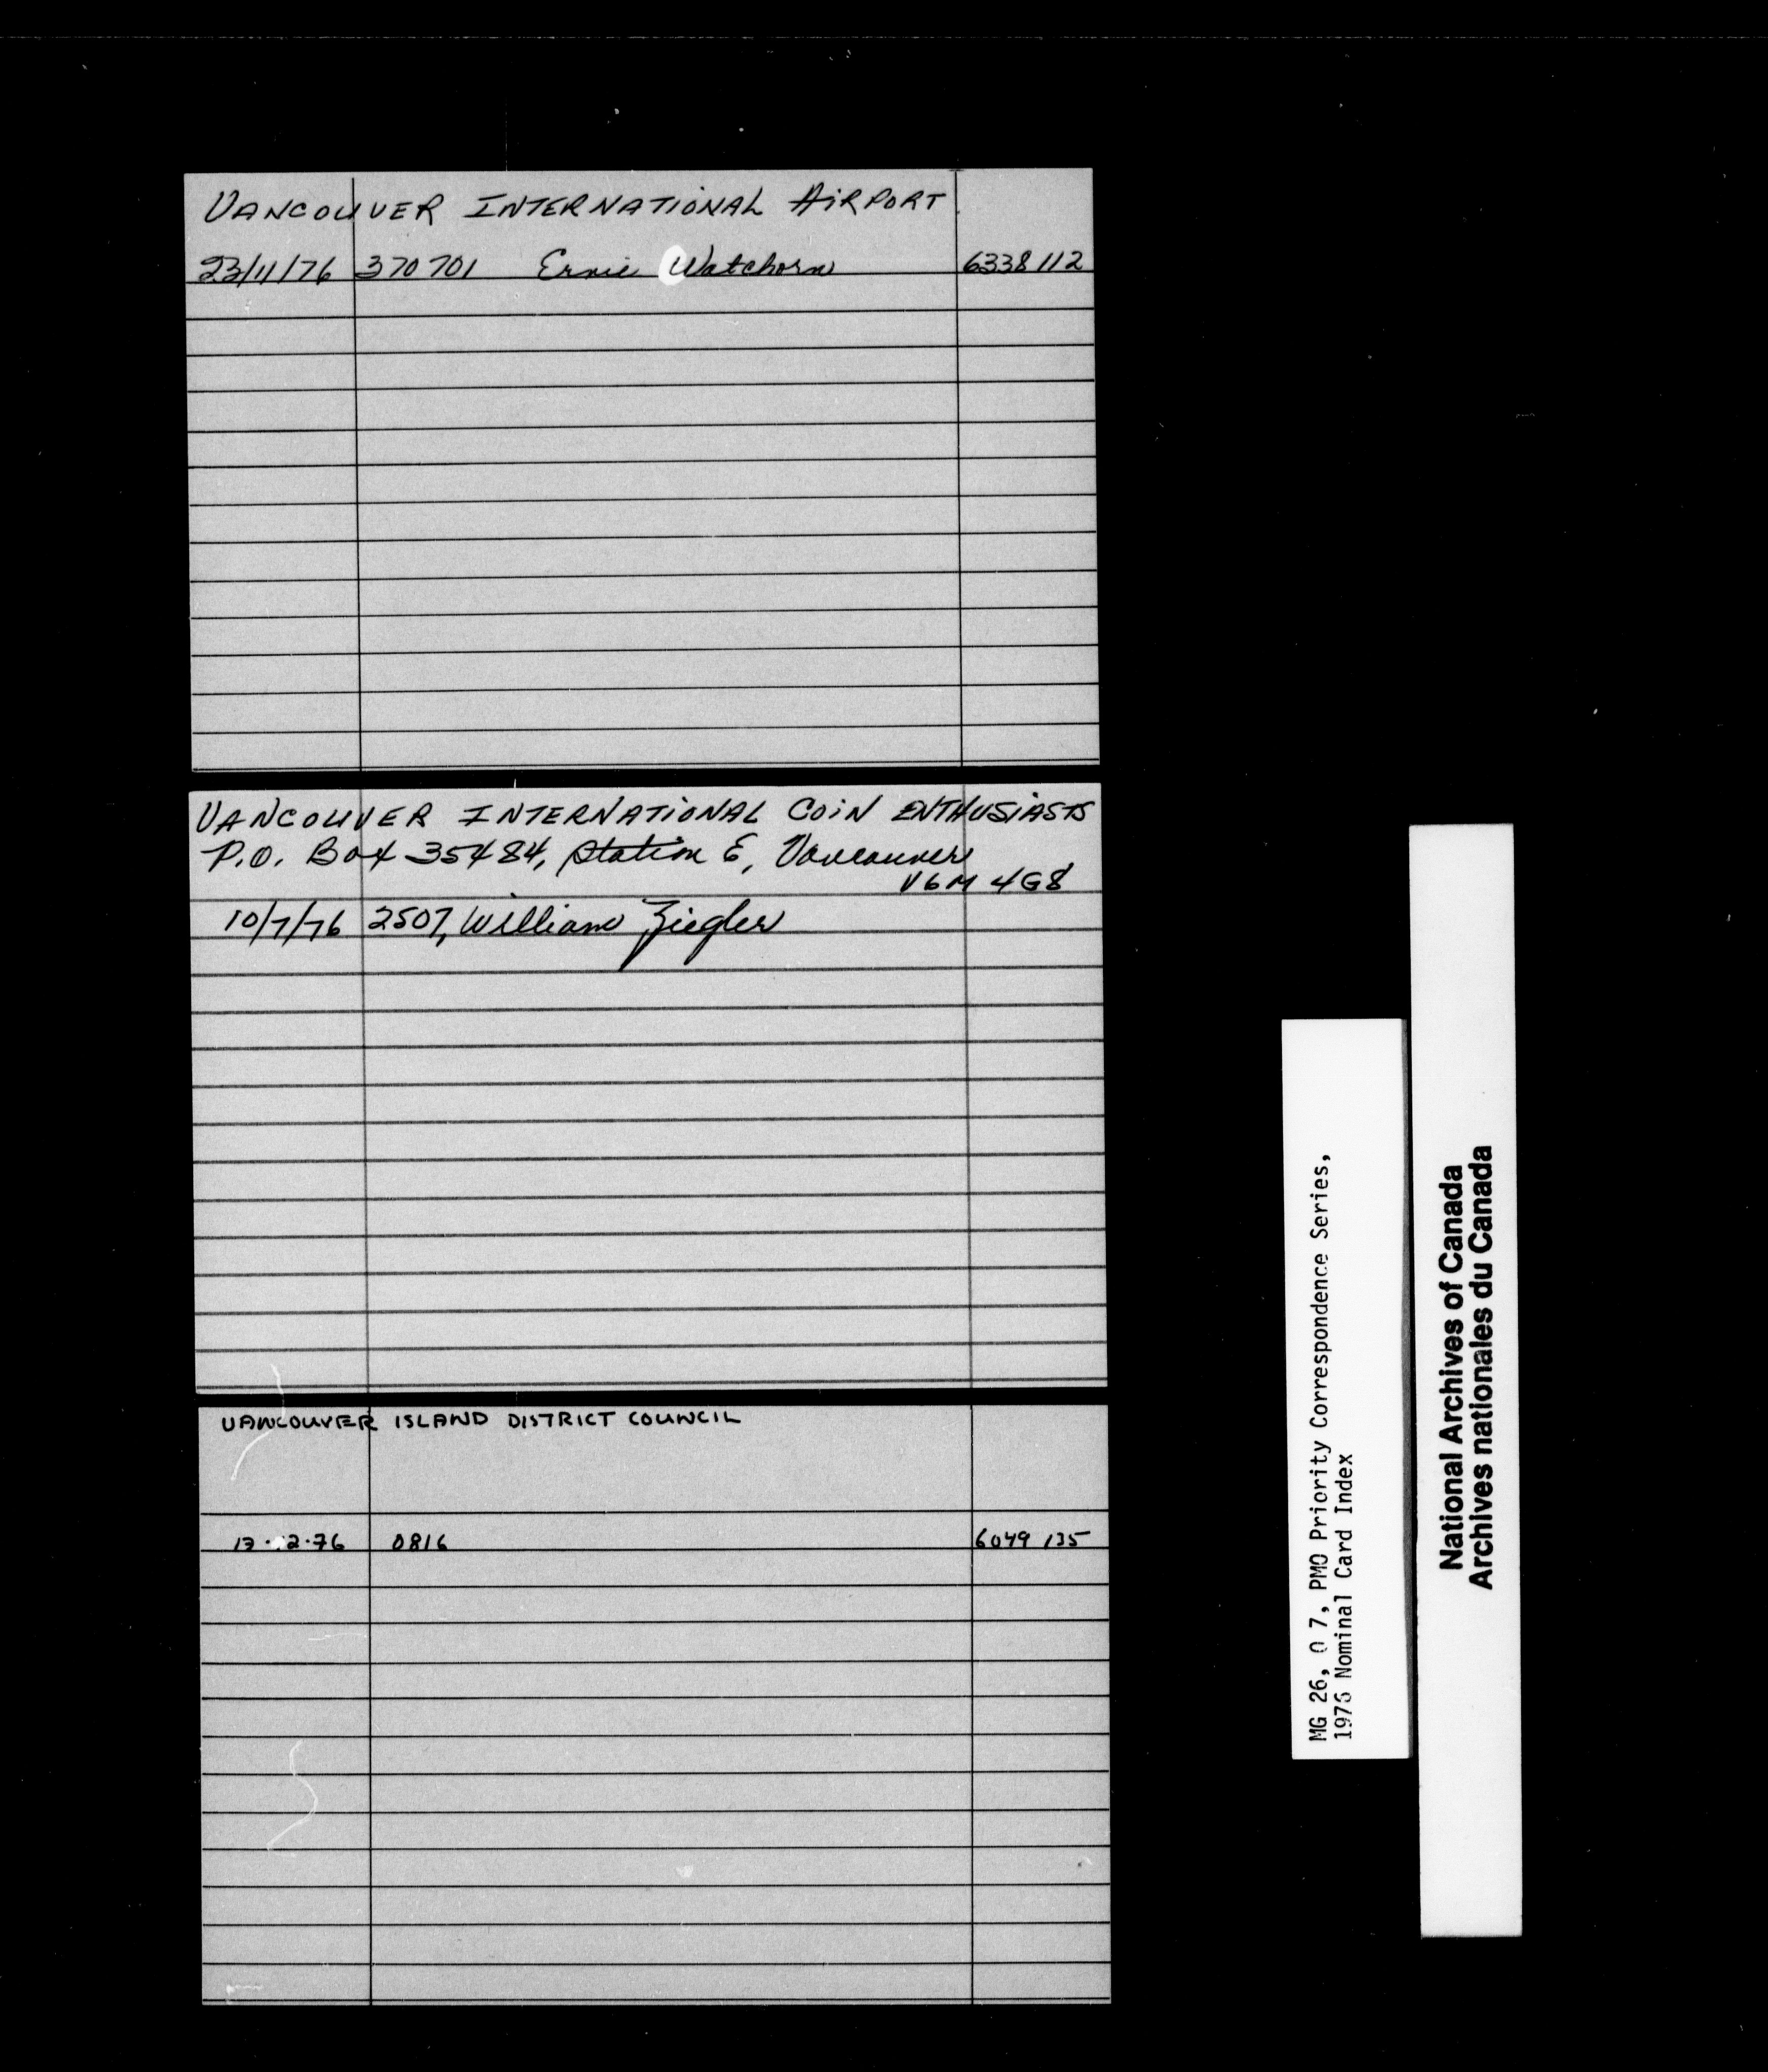 VANCOUVER INTERNATIONAL AIRPORT
23/11/76 370701 Ernie Watchorn 6338112
VANCOUVER INTERNATIONAL COIN ENTHUSIASTS
P.O. Box 35484, Station E, Vancouver
V6M 4G8
10/7/76 2507, William Ziegler
VANCOUVER ISLAND DISTRICT COUNCIL
0816 6049 135
MG 26, O 7, PMO Priority Correspondence Series,
1976 Nominal Card Index
National Archives of Canada
Archives nationales du Canada